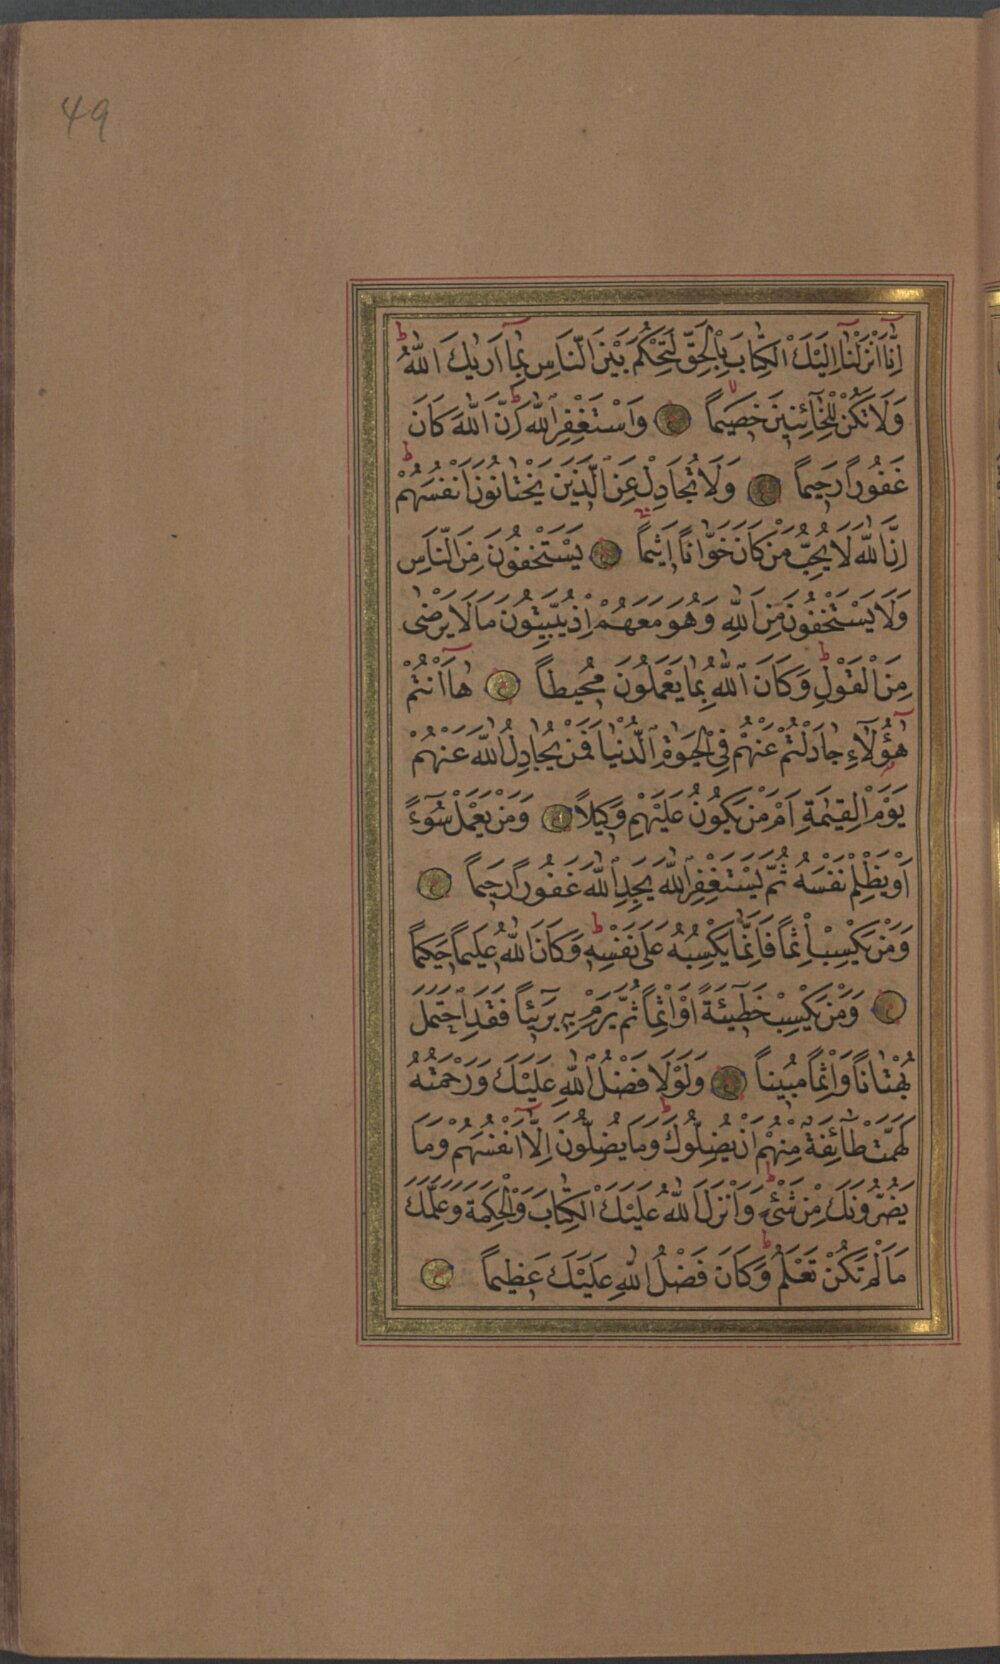 49
اِنَّٓا اَنْزَلْنَٓا اِلَيْكَ الْكِتَابَ بِالْحَقِّ لِتَحْكُمَ بَيْنَ النَّاسِ بِمَٓا اَرٰيكَ اللّٰهُ
وَلَا تَكُنْ لِلْخَٓائِنِينَ خَصِيمًا وَاسْتَغْفِرِ اللّٰهَ اِنَّ اللّٰهَ كَانَ
غَفُورًا رَحِيمًا وَلَا تُجَادِلْ عَنِ الَّذِينَ يَخْتَانُونَ اَنْفُسَهُمْ
اِنَّ اللّٰهَ لَا يُحِبُّ مَنْ كَانَ خَوَّانًا اَثِيمًا يَسْتَخْفُونَ مِنَ النَّاسِ
وَلَا يَسْتَخْفُونَ مِنَ اللّٰهِ وَهُوَ مَعَهُمْ اِذْ يُبَيِّتُونَ مَا لَا يَرْضٰى
مِنَ الْقَوْلِ وَكَانَ اللّٰهُ بِمَا يَعْمَلُونَ مُحِيطًا هَٓا اَنْتُمْ
هٰٓؤُلَٓاءِ جَادَلْتُمْ عَنْهُمْ فِي الْحَيٰوةِ الدُّنْيَا فَمَنْ يُجَادِلُ اللّٰهَ عَنْهُمْ
يَوْمَ الْقِيٰمَةِ اَمْ مَنْ يَكُونُ عَلَيْهِمْ وَكِيلًا وَمَنْ يَعْمَلْ سُٓوءًا
اَوْ يَظْلِمْ نَفْسَهُ ثُمَّ يَسْتَغْفِرِ اللّٰهَ يَجِدِ اللّٰهَ غَفُورًا رَحِيمًا
وَمَنْ يَكْسِبْ اِثْمًا فَاِنَّمَا يَكْسِبُهُ عَلٰى نَفْسِهِ وَكَانَ اللّٰهُ عَلِيمًا حَكِيمًا
وَمَنْ يَكْسِبْ خَطِٓيئَةً اَوْ اِثْمًا ثُمَّ يَرْمِ بِهِ بَرِٓيئًا فَقَدِ احْتَمَلَ
بُهْتَانًا وَاِثْمًا مُبِينًا وَلَوْلَا فَضْلُ اللّٰهِ عَلَيْكَ وَرَحْمَتُهُ
لَهَمَّتْ طَٓائِفَةٌ مِنْهُمْ اَنْ يُضِلُّوكَ وَمَا يُضِلُّونَ اِلَّٓا اَنْفُسَهُمْ وَمَا
يَضُرُّونَكَ مِنْ شَيْءٍ وَاَنْزَلَ اللّٰهُ عَلَيْكَ الْكِتَابَ وَالْحِكْمَةَ وَعَلَّمَكَ
مَا لَمْ تَكُنْ تَعْلَمُ وَكَانَ فَضْلُ اللّٰهِ عَلَيْكَ عَظِيمًا